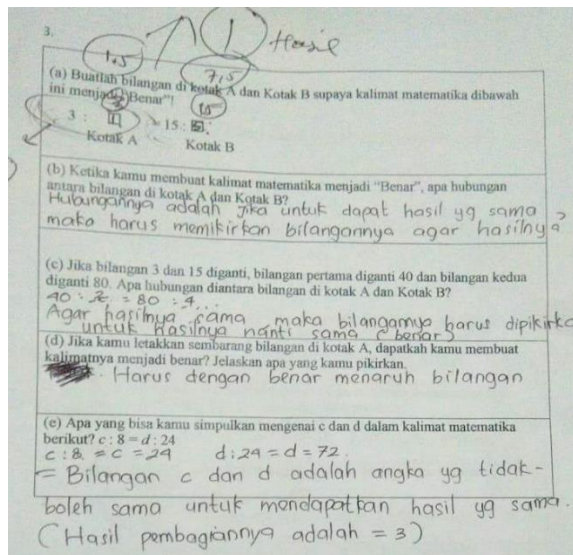 3.
1,5
1
Hasil
7,5
(a) Buatlah bilangan di kotak A dan Kotak B supaya kalimat matematika dibawah
ini menjadi "Benar"!
3 :
= 15 :
15
Kotak A
Kotak B
(b) Ketika kamu membuat kalimat matematika menjadi "Benar", apa hubungan
antara bilangan di kotak A dan Kotak B?
Hubungannya adalah jika untuk dapat hasil yg sama
maka harus memikirkan bilangannya agar hasilnya?
(c) Jika bilangan 3 dan 15 diganti, bilangan pertama diganti 40 dan bilangan kedua
diganti 80. Apa hubungan diantara bilangan di kotak A dan Kotak B?
40 : 2 = 80 : 4...
Agar hasilnya sama maka bilangannya harus dipikirka
untuk hasilnya nanti sama benar)
(d) Jika kamu letakkan sembarang bilangan di kotak A, dapatkah kamu membuat
kalimatnya menjadi benar? Jelaskan apa yang kamu pikirkan.
Harus dengan benar menaruh bilangan
(e) Apa yang bisa kamu simpulkan mengenai c dan d dalam kalimat matematika
berikut? c : 8 = d : 24
c : 8 = c = 24 d : 24 = d = 72.
= Bilangan c dan d adalah angka yg tidak-
boleh sama untuk mendapatkan hasil yg sama.
(Hasil pembagiannya adalah = 3)